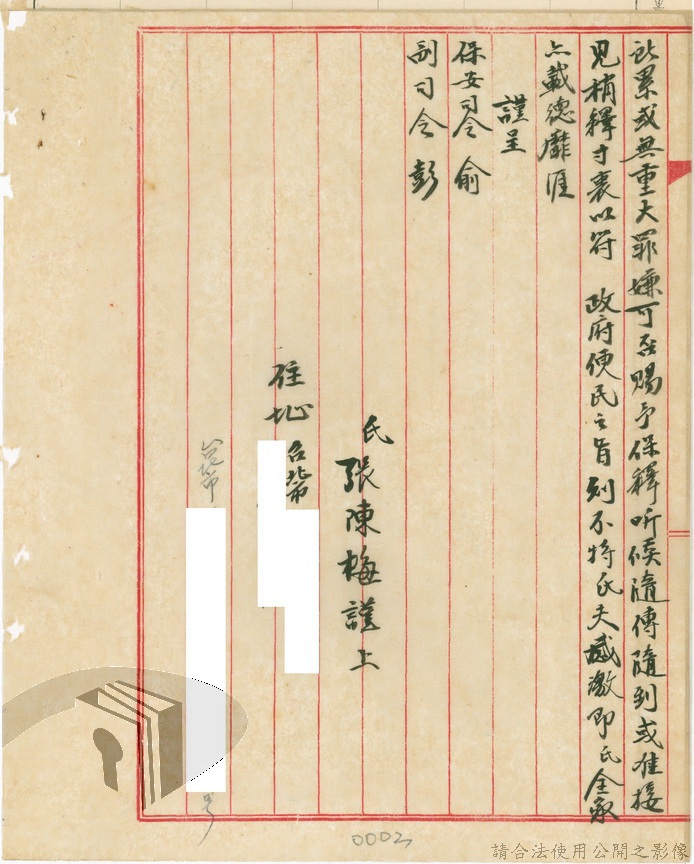 此累或無重大罪嫌可否賜予保釋听候隨傳隨到或准接
見稍釋寸衷以符 政府便民之旨則不特氏夫感激即氏全家
亦載德靡涯
謹呈
保安司令 俞
副司令 彭
氏 張陳梅謹上
住址 台北市
台北市 號
0002
請合法使用公開之影像